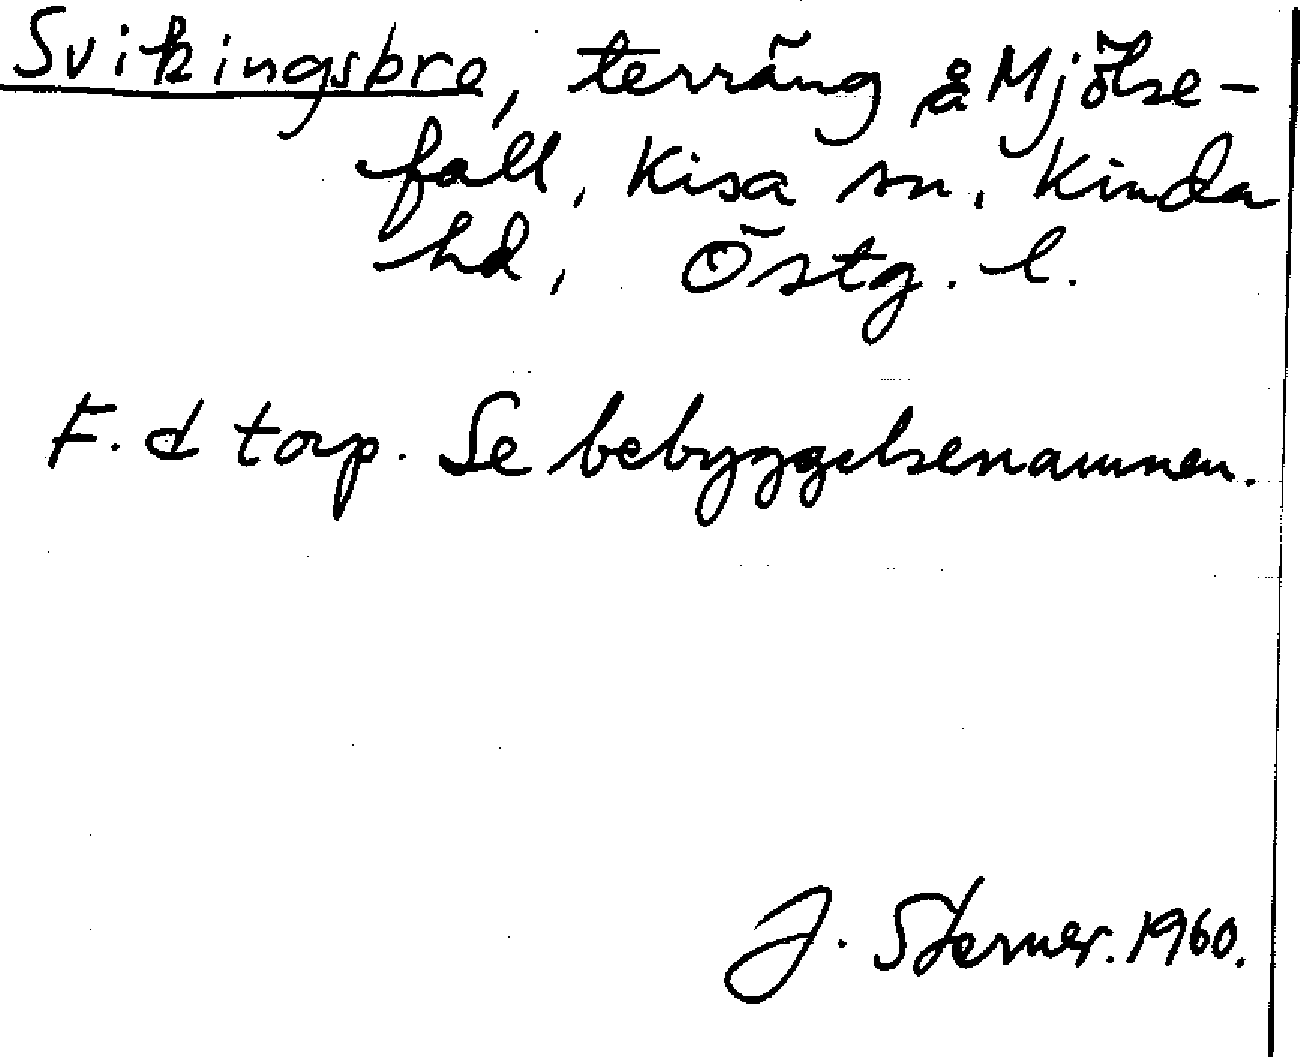 Svikingsbro, terräng å Mjölse-
fall, Kisa sn, Kinda
hd, Östg. l.
F. d torp. Se bebyggelsenamnen.
J. Sterner. 1960.